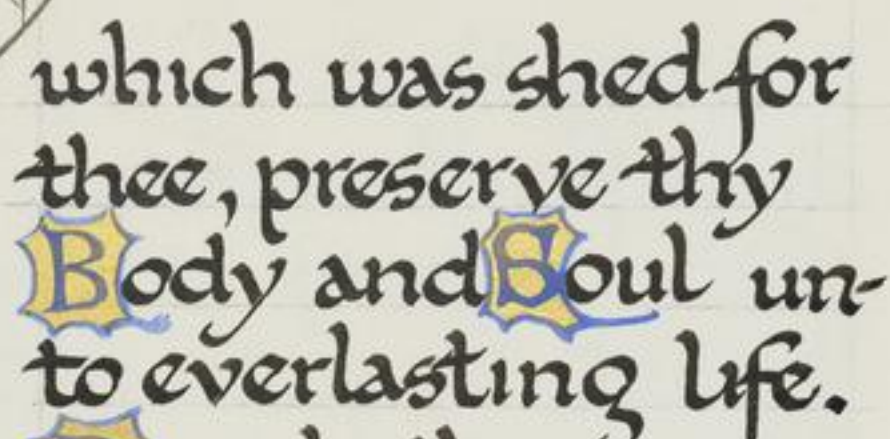 which was shed for
thee, preserve thy
Body and Soul un-
to everlasting life.